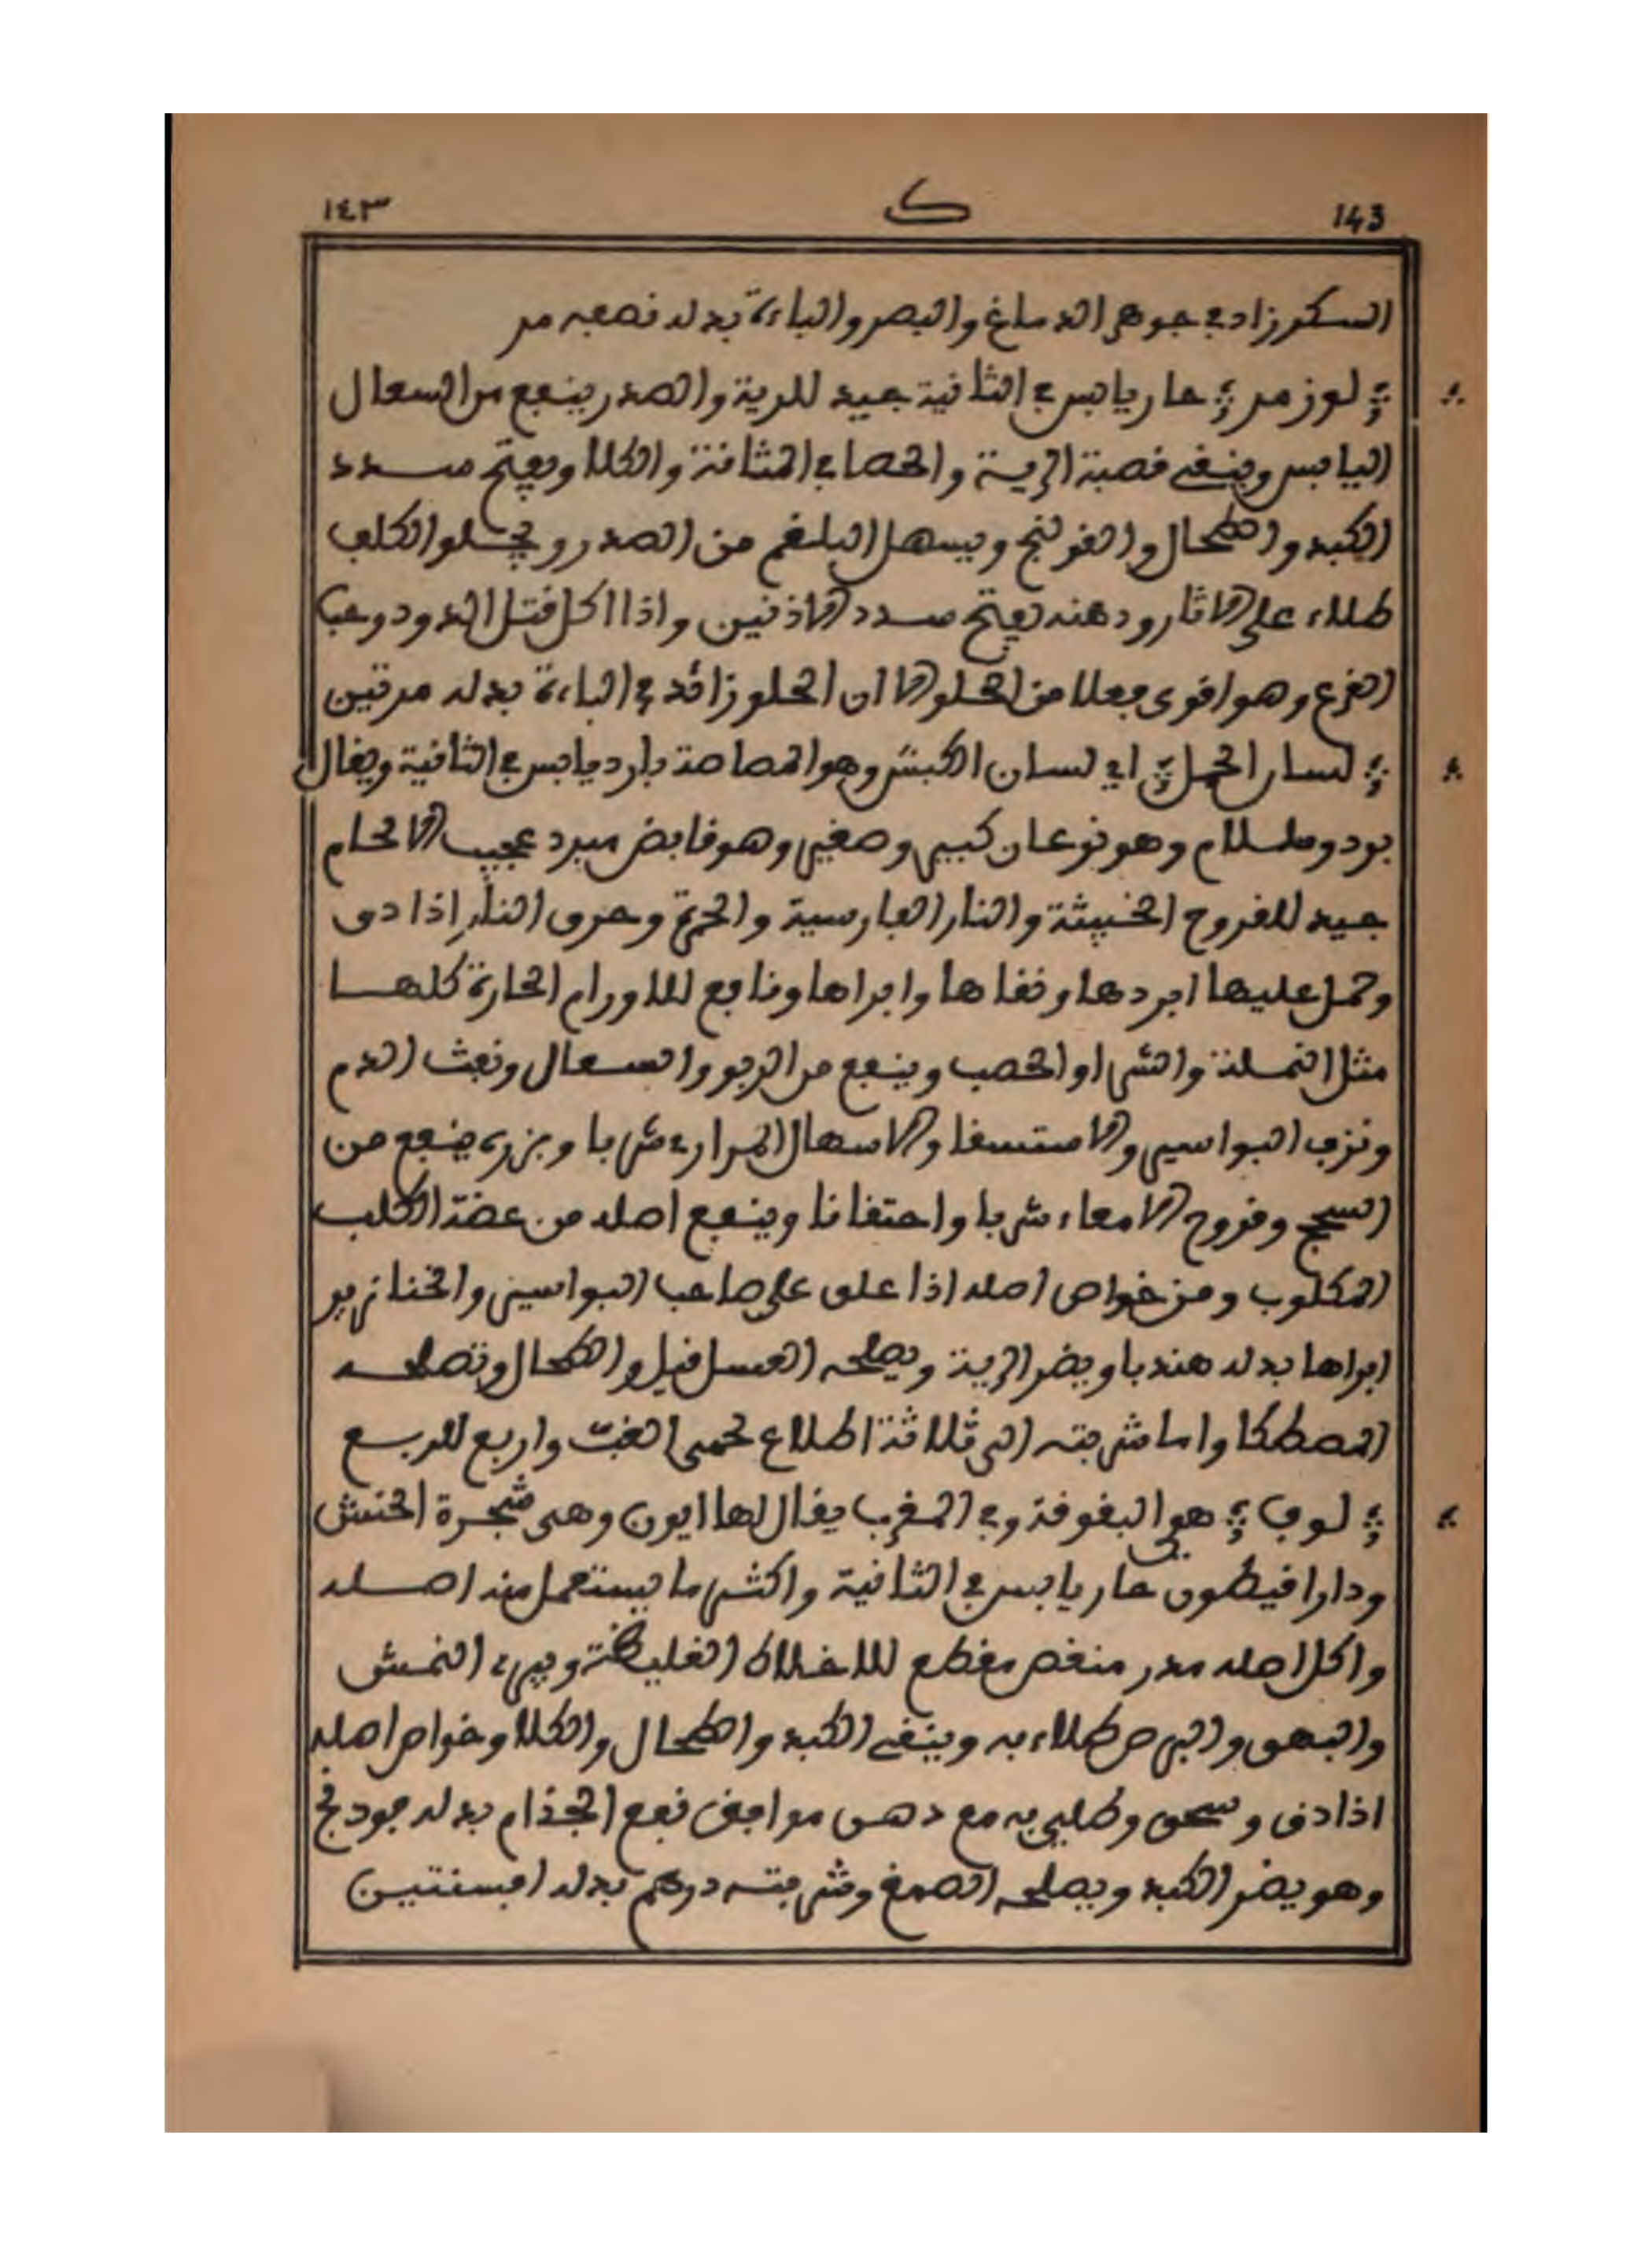 143 ك ١٤٣
السكر زاد في جوهر الدماغ والبصر والباءة بدله نصفه مر
لوز مر حار يابس في الثانية جيد للرية والصدر ينفع من السعال
اليابس وينفي قصبة الرية والحصا في المثانة والكلا ويفتح سدد
الكبد والطحال والقولنج ويسهل البلغم من الصدر ويجلو الكلف
طلاء على الاثار ودهنه يفتح سدد الاذنين واذا اكل قتل الدود وحب
القرع وهو اقوى فعلا من الحلو الا ان الحلو زائد في الباءة بدله مرتين
لسان الحمل اي لسان الكبش وهو المصاصة بارد يابس في الثانية ويقال
برد وسلام وهو نوعان كبير وصغير وهو قابض مبرد عجيب الالحام
جيد للقروح الخبيثة والنار الفارسية والحمرة وحرق النار اذا دق
وحمل عليها ابردها ونقاها وابراها ونافع للاورام الحارة كلها
مثل النملة والشرا والحصب وينفع من الربو والسعال ونفث الدم
ونزف البواسير والاستسقا والاسهال المراري شربا وبزره ينفع من
السحج وقروح الامعاء شربا واحتقانا وينفع اصله من عضة الكلب
المكلوب ومن خواص اصله اذا علق على صاحب البواسير والخنازير
ابراها بدله هندبا ويضر الرية ويصلحه العسل قيل والطحال وتصلحه
المصطكا واما شربته الى ثلاثة اطلاع لحمى الغب واربع للربع
لوف هو البقوقة وفي المغرب يقال لها ايرن وهي شجرة الحنش
ودراقيطون حار يابس في الثانية واكثر ما يستعمل منه اصله
واكل اصله مدر منغص مقطع للاخلاط الغليظة ويبرئ النمش
والبهق والبرص طلاء به وينقي الكبد والطحال والكلا وخواص اصله
اذا دق وسحق وطلي به مع دهن موافق نفع الجذام بدله فودنج
وهو يضر الكبد ويصلحه الصمغ وشربته درهم بدله افسنتين